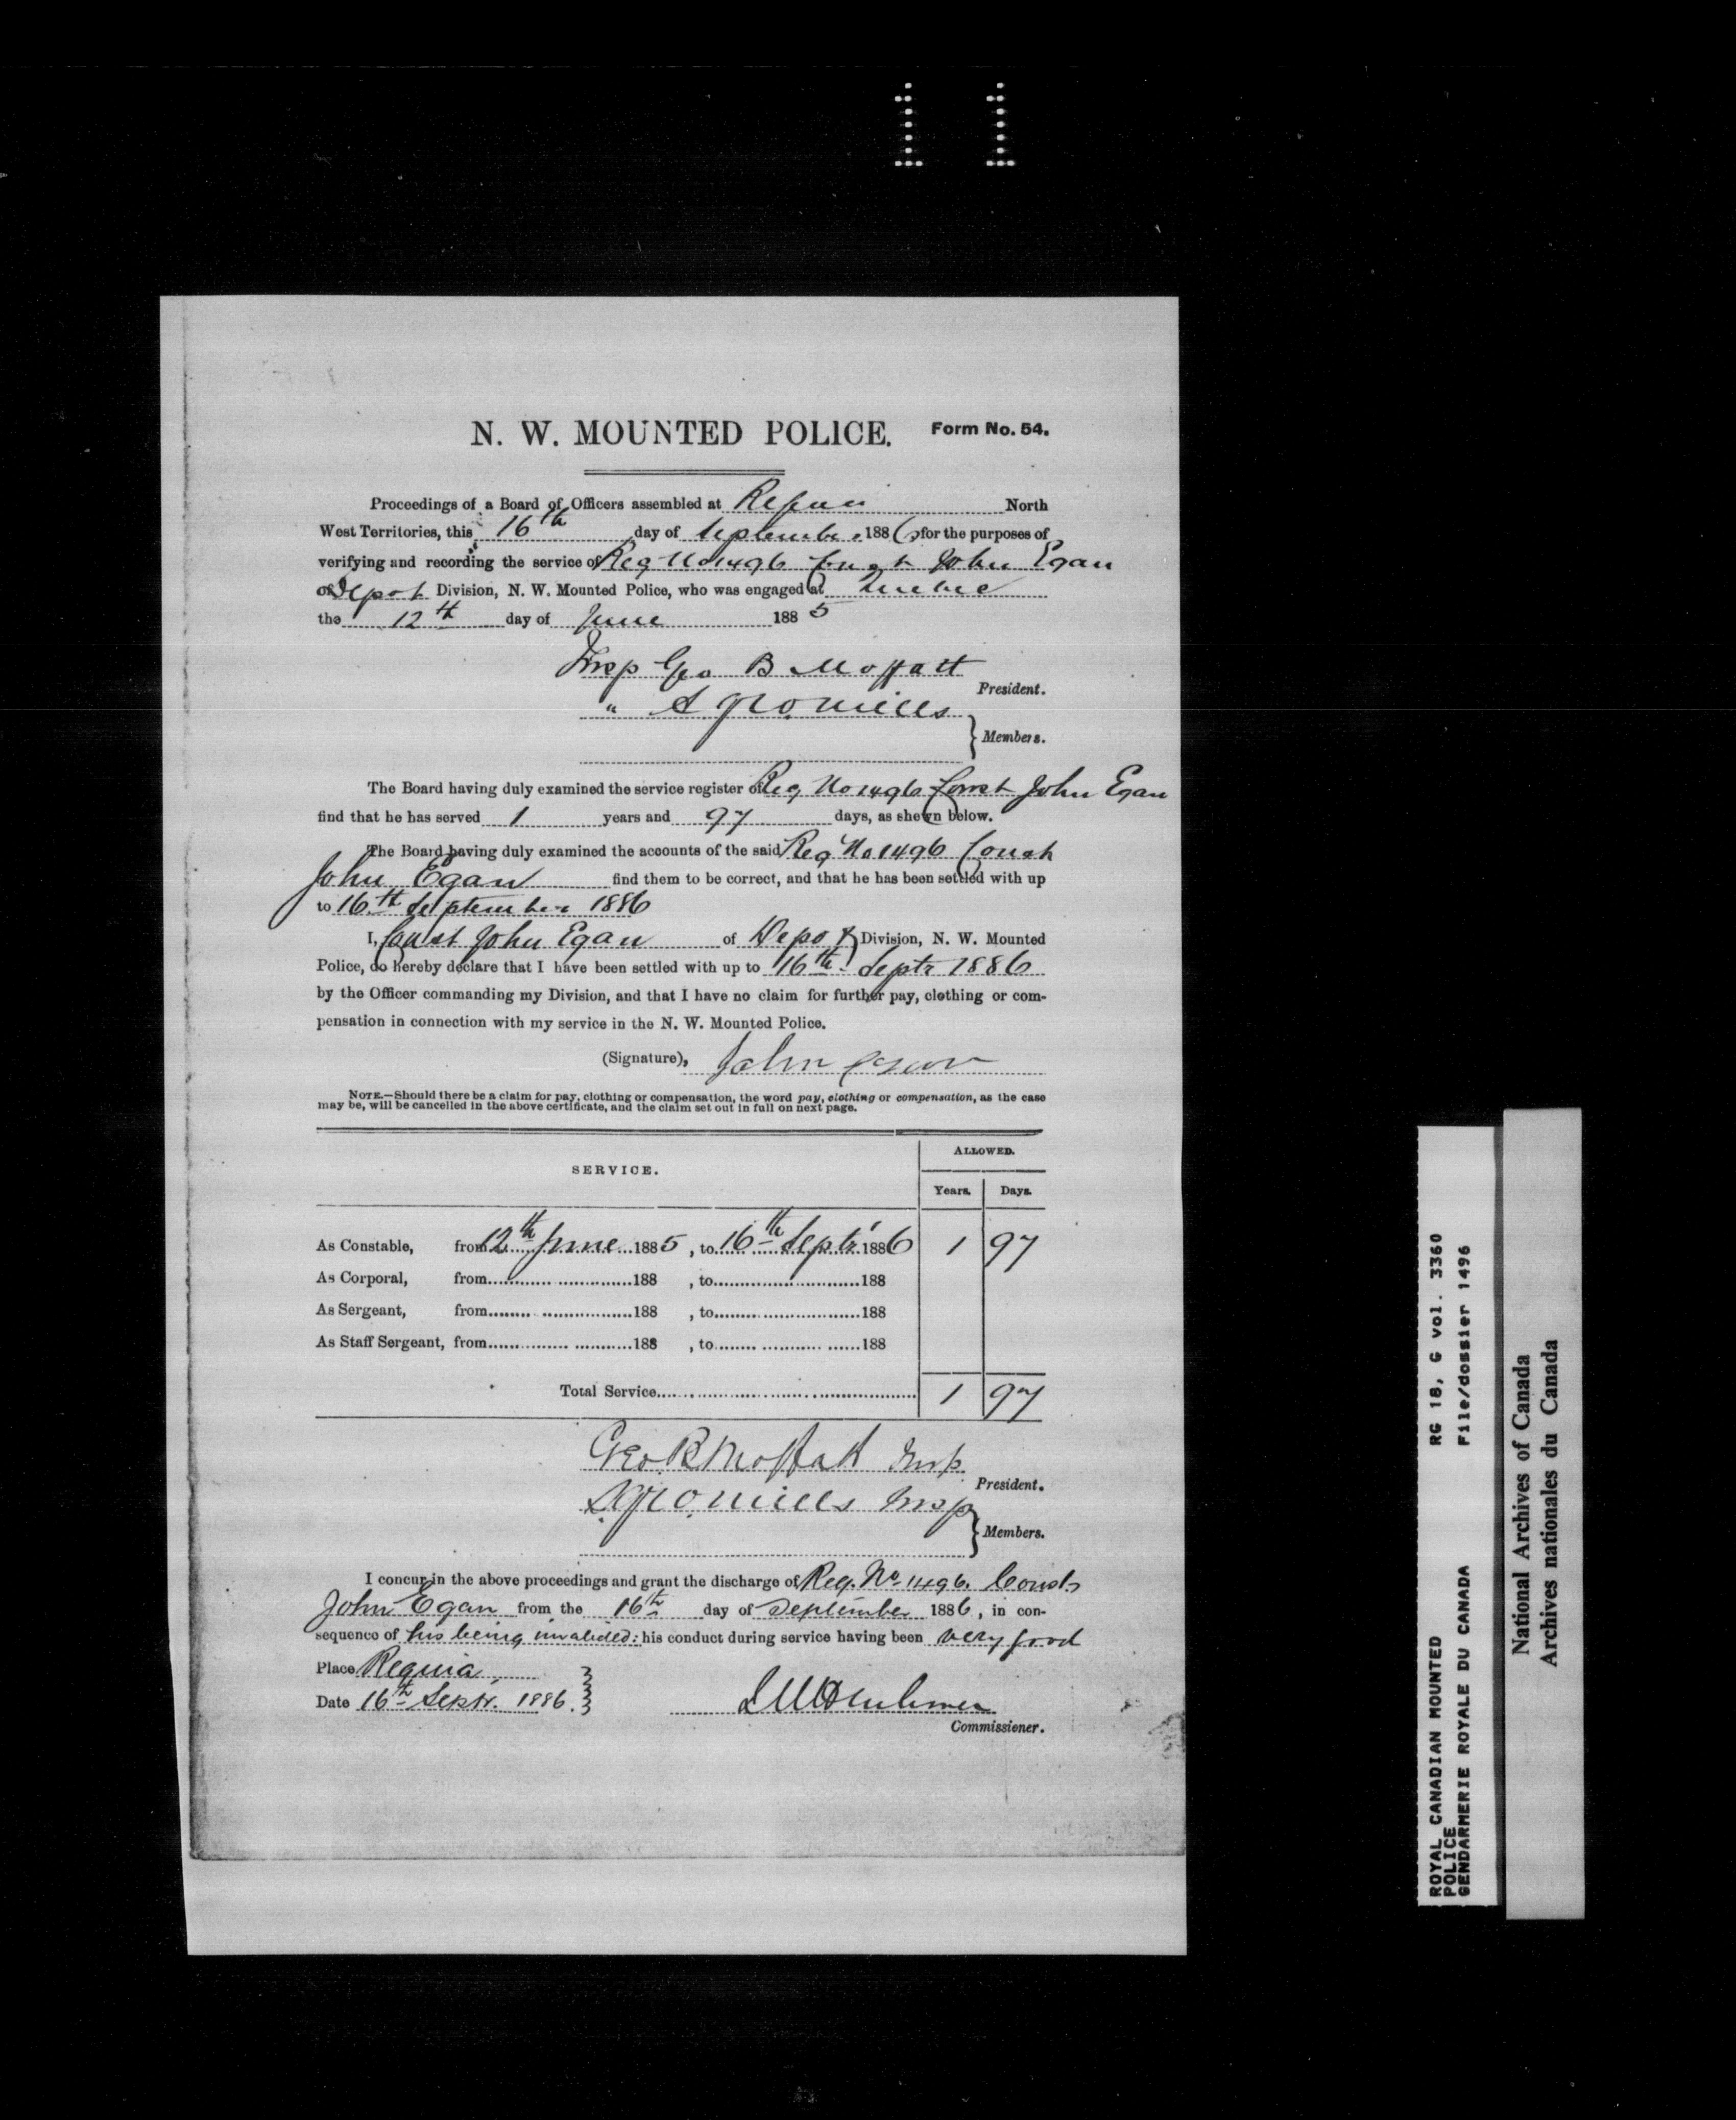 11
N. W. MOUNTED POLICE. Form No. 54.
Proceedings of a Board of Officers assembled at Regina North
West Territories, this 16th day of September 1886 for the purposes of
verifying and recording the service of Reg No 1496 Const John Egan
of Depot Division, N. W. Mounted Police, who was engaged at Quebec
the 12th day of June 1885
Insp Geo B Moffatt
President.
"
Members.
The Board having duly examined the service register of Reg No 1496 Const John Egan
find that he has served 1 years and 97 days, as shewn below.
The Board having duly examined the accounts of the said Reg No 1496 Const
John Egan find them to be correct, and that he has been settled with up
to 16th September 1886
I, Const John Egan of Depot Division, N. W. Mounted
Police, do hereby declare that I have been settled with up to 16th Septr 1886
by the Officer commanding my Division, and that I have no claim for further pay, clothing or com-
pensation in connection with my service in the N. W. Mounted Police.
(Signature), John Egan
NOTE.—Should there be a claim for pay, clothing or compensation, the word pay, clothing or compensation, as the case
may be, will be cancelled in the above certificate, and the claim set out in full on next page.
SERVICE. ALLOWED.
Years. Days.
As Constable, from 12th June 1885, to 16th Septr 1886 1 97
As Corporal, from 188 , to 188
As Sergeant, from 188 , to 188
As Staff Sergeant, from 188 , to 188
Total Service 1 97
Geo B Moffatt Insp
President.
Insp
Members.
I concur in the above proceedings and grant the discharge of Reg. No 1496. Const
John Egan from the 16th day of September 1886, in con-
sequence of his being invalided: his conduct during service having been very good
Place Regina
Date 16th Septr. 1886.
Commissioner.
ROYAL CANADIAN MOUNTED RG 18, G vol. 3360
POLICE
GENDARMERIE ROYALE DU CANADA File/dossier 1496
National Archives of Canada
Archives nationales du Canada